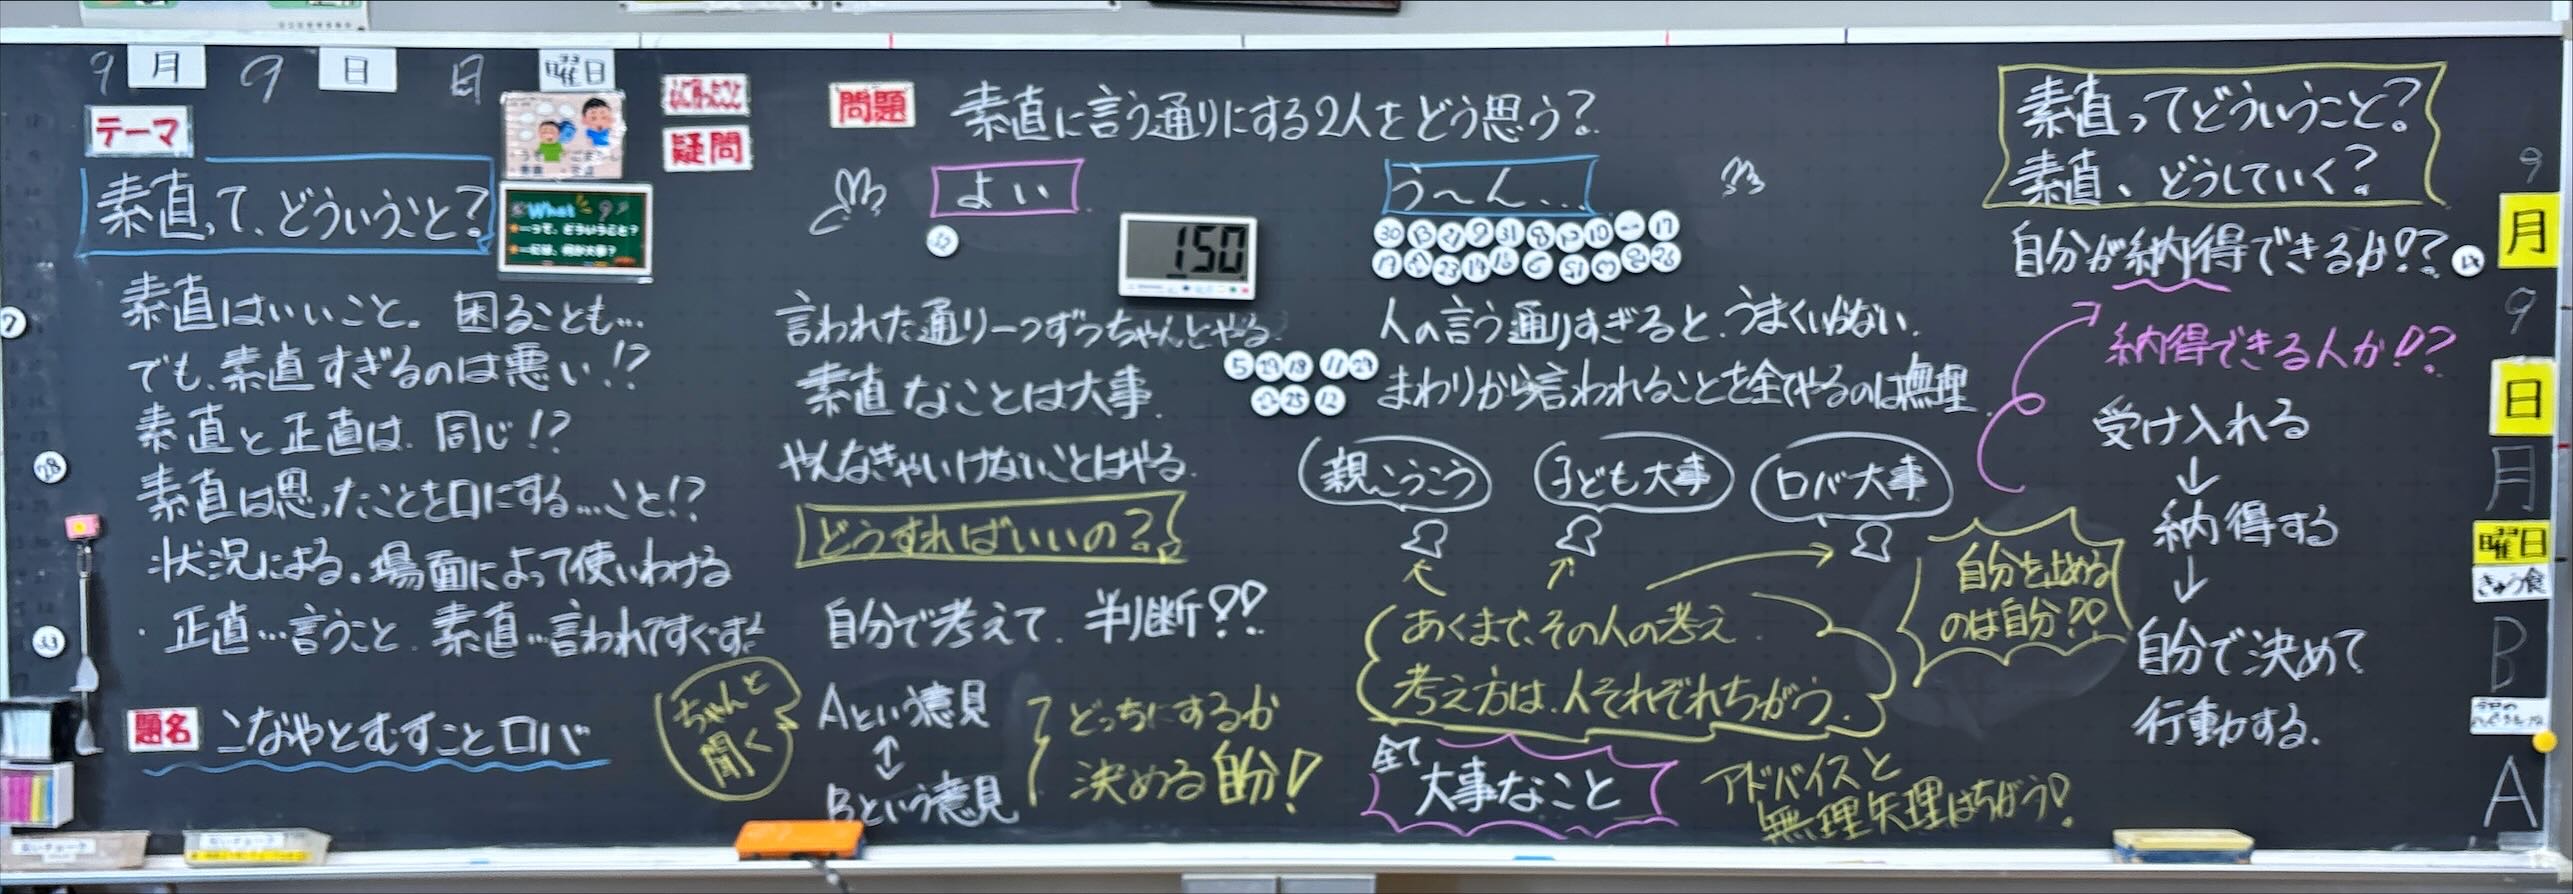 9月9日 月曜日
テーマ
素直って、どういうこと?
What
って、どういうこと?
には、何が大事?
疑問
素直はいいこと。 困ることも…
でも、素直すぎるのは悪い!?
素直と正直は、同じ!?
素直は思ったことを口にする…こと!?
状況による。場面によって使いわける
・正直…言うこと、素直…言われてすぐする
題名 こなやとむすことロバ
ちゃんと
聞く
問題 素直に言う通りにする2人をどう思う?
よい
150
言われた通り一つずつちゃんとやる
素直なことは大事、
やんなきゃいけないことはやる、
どうすればいいの?
自分で考えて、判断!!
Aという意見
Bという意見
どっちにするか
決める自分!
う〜ん…
人の言う通りすぎると、うまくいかない、
まわりから言われることを全てやるのは無理、
親こうこう
子ども大事
ロバ大事
あくまで、その人の考え、
考え方は、人それぞれちがう、
全て
大事なこと
アドバイスと
無理矢理はちがう!
自分を止める
のは自分!!
素直ってどういうこと?
素直、どうしていく?
自分が納得できるか!?
納得できる人か!?
受け入れる
↓
納得する
↓
自分で決めて
行動する、
9
月
9
日
月
曜日
きゅう食
B
A